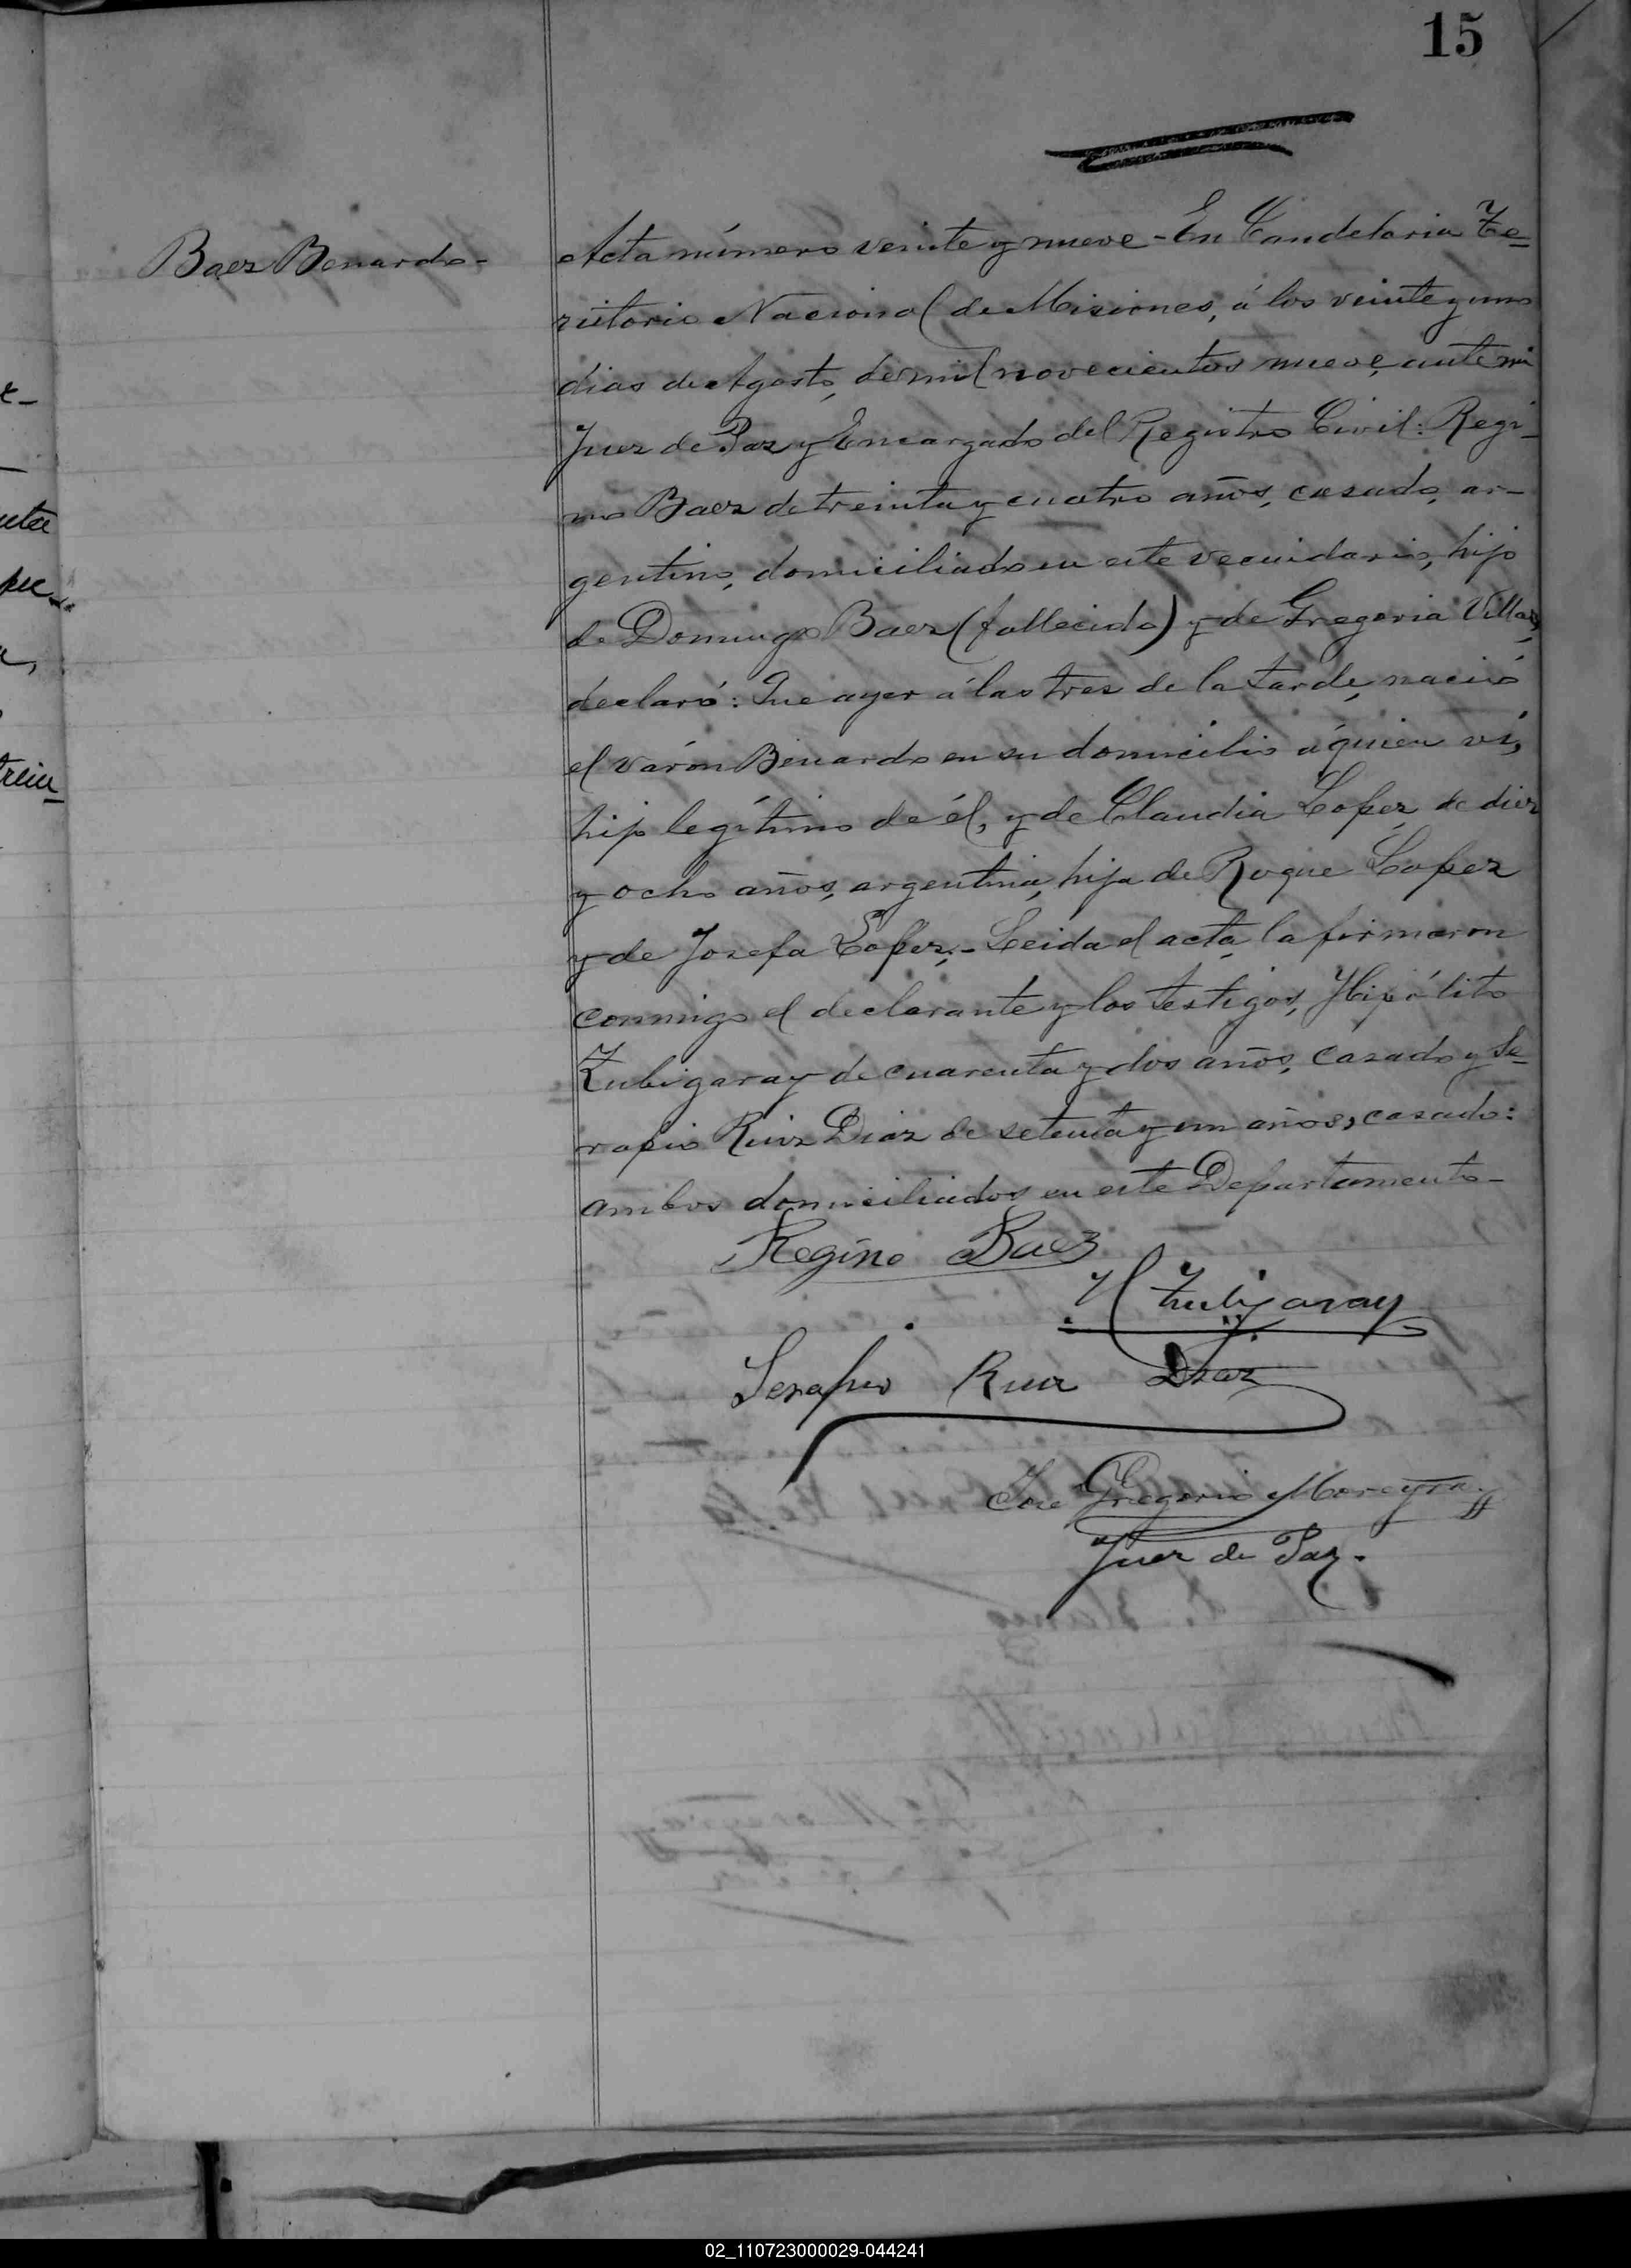 15
Baez Benardo-
Acta número veinte y nueve - En Candelaria Te-
rritorio Nacional de Misiones, á los veinte y uno
dias de Agosto, de mil novecientos nueve, ante mi
Juez de Paz y Encargado del Registro Civil: Regi-
no Baez de treinta y cuatro años, casado, ar-
gentino, domiciliado en este vecindario, hijo
de Domingo Baez (fallecido) y de Gregoria
declaró: Que ayer á las tres de la tarde, nació
el varón Benardo en su domicilio á quien vi,
hijo legítimo de él, y de Claudia Lopez, de diez
y ocho años, argentina, hija de Roque Lopez
y de Josefa Lopez;- Leida el acta, la firmaron
conmigo el declarante y los testigos, Hipólito
Zubigaray de cuarenta y dos años, casado y Se-
rapio Ruiz Diaz de setenta y un años, casado:
ambos domiciliados en este Departamento-
Regino Baez
H Zubigaray
Serapio Ruiz Diaz
José Gregorio Moreyra
Juez de Paz.
02_110723000029-044241